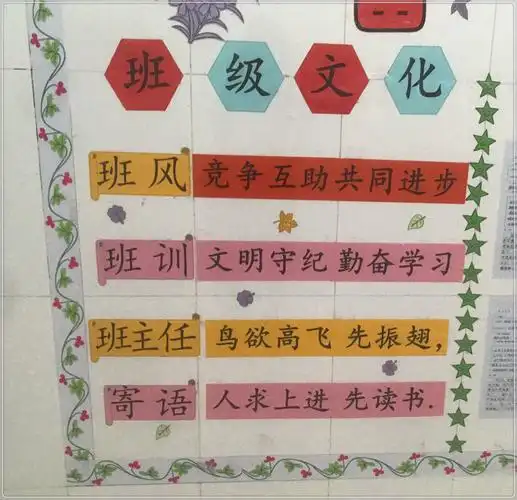 班级文化
班风 竞争互助共同进步
班训 文明守纪 勤奋学习
班主任 鸟欲高飞 先振翅,
寄语 人求上进 先读书.